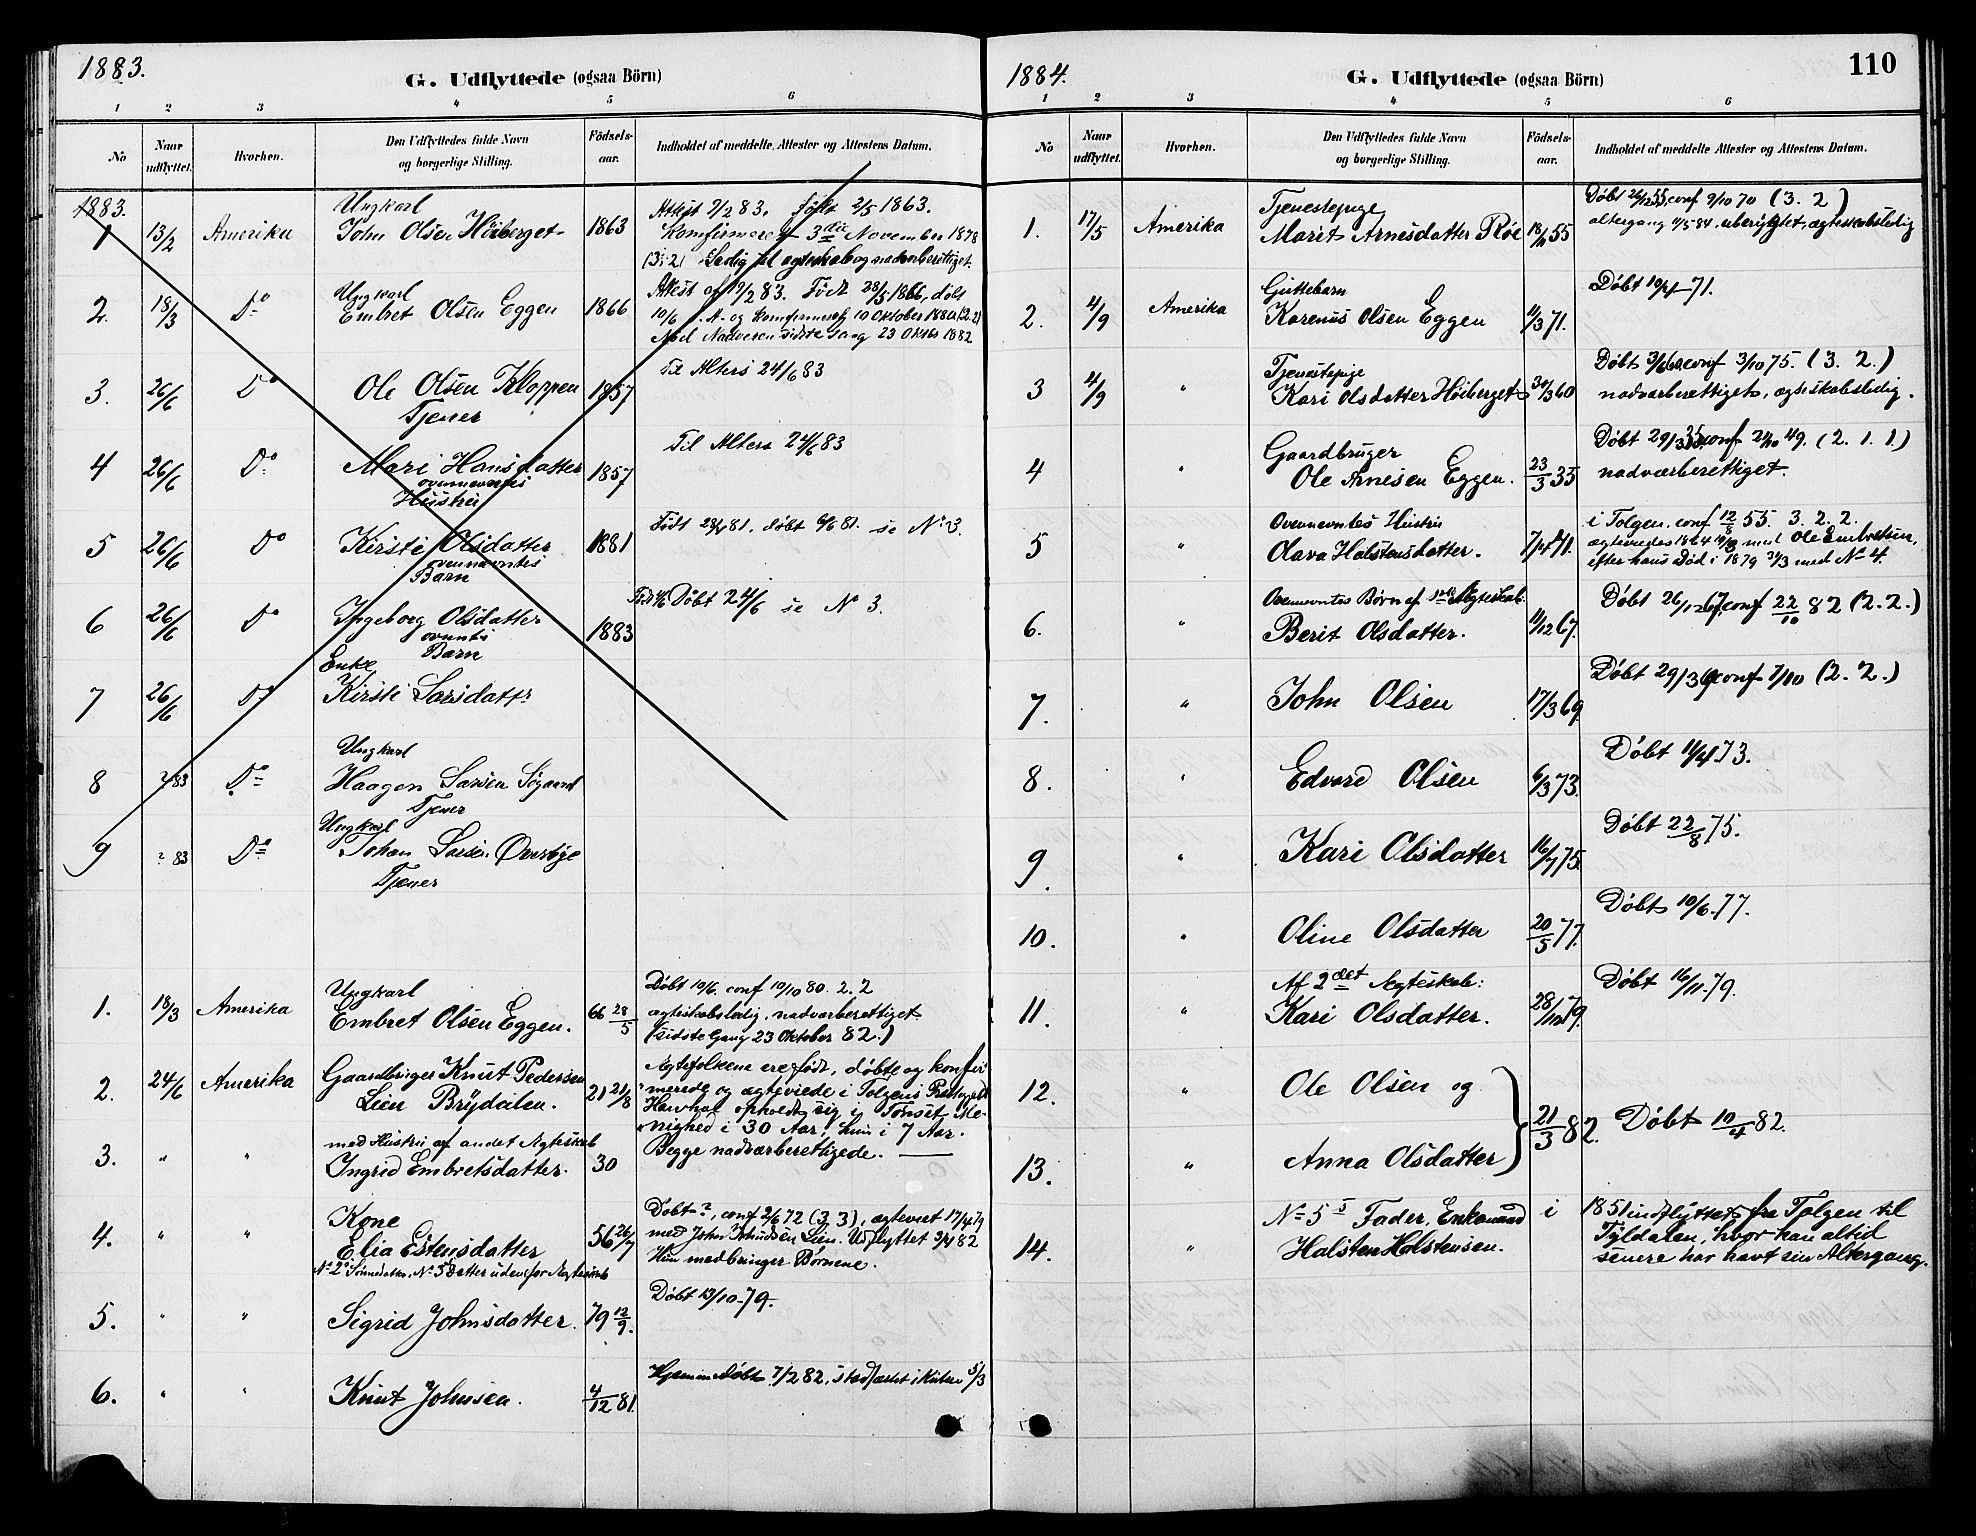 1883.
G. Udflyttede (ogsaa Börn)
1 2 3 4 5 6
No
Naar udflyttet.
Hvorhen.
Den Udflyttedes fulde Navn og borgerlige Stilling.
Födsels-aar.
Indholdet af meddelte Attester og Attestens Datum.
1883.
Ungkarl
1 13/2 Amerika John Olsen Höiberget 1863 Attest 2/2 83. Født 2/5 1863.
Konfirmeret 3die November 1878
(3.2) Ledig til ægteskab og nadverberettiget.
Ungkarl
2. 18/3 Do Embret Olsen Eggen 1866 Attest af 19/2 83. Født 28/5 1866, døbt
10/6 s. A. og Konfirmeret 10 Oktober 1880 (2.2)
Nød Nadveren sidste Gang 23 Oktbr 1882
3. 26/6 Do Ole Olsen Kloppen 1857 Til Alters 24/6 83
Tjener
4 26/6 Do Mari Hansdatter 1857 Til Alters 24/6 83
ovennevntes
Hustru
5 26/6 Do Kirsti Olsdatter 1881 døbt 6/6 81. se No 3.
ovennævntes
Barn
6 26/6 Do Ingeborg Olsdatter 1883 Døbt 24/6 se No 3.
Barn
Enke
7 26/6 Do Kirsti Larsdattr
Ungkarl
8 ? 83 Do Haagen Larsen Søgaard
Tjener
Ungkarl
9 ? 83 Do Johan Larsen Øversjøe
Tjener
Ungkarl
1. 18/3 Amerika Embret Olsen Eggen. 66 28/5 Døbt 10/6. conf 10/10 80. 2.2
ægteskabsledig, nadværberettiget
(sidste Gang 23 Oktober 82.)
2. 24/6 Amerika Gaardbruger Knut Pedersen
Lien Brydalen. 21 21/8 Ægtefolkene ere født, døbte og konfir-
merede og ægteviede i Tolgens Præstegjeld
Han har opholdt sig i Tönset Me-
nighed i 30 Aar, hun i 7 Aar.
Begge nadværberettigede.
med Hustru af andet Ægteskab
3. " " Ingrid Embretsdatter. 30
Kone
4. " " Elia Estensdatter 56 26/7 Døbt ?, conf 2/6 72 (3,3), ægteviet 17/4 79
med John Knudsen Lien. Udflyttet 3/4 82
Hun medbringer Børnene.
5. " " Sigrid Johnsdatter. 79 12/9. Døbt 13/10-79.
6. " " Knut Johnsen. 4/12 81. Hjemmedøbt 7/2 82, stadfæstet i Kirken 5/3
1884.
G. Udflyttede (ogsaa Börn)
110
1 2 3 4 5 6
No
Naar udflyttet.
Hvorhen.
Den Udflyttedes fulde Navn og borgerlige Stilling.
Födsels-aar.
Indholdet af meddelte Attester og Attestens Datum.
Tjenestepige
1. 17/5 Amerika Marit Arnesdatter Røe 55 Døbt 26/12 55, conf 9/10 70 (3.2)
altergang 11/5 84, uberygtet, ægteskabsledig
Guttebarn
2. 4/9 Amerika Karenus Olsen Eggen 11/3 71. Døbt 10/4-71.
Tjenestepige
3 4/9 " Kari Olsdatter Höiberget 30/3 60 Døbt 3/6 60 conf 3/10 75. (3.2.)
nadværberettiget, ægteskabsledig.
Gaardbruger
4 " Ole Arnesen Eggen. 23/3 35 Døbt 29/3 35 conf 49. (2.1.1.)
nadværberettiget.
Ovennevntes Hustru
5 " Olava Halstensdatter. 7/4 41. i Tolgen. conf 12/8 55. 3.2.2.
med Ole Embretsen,
efter hans Død i 1879 med No 4.
Ovennevntes Børn af 1ste Ægteskab:
6. " Berit Olsdatter. 11/12 67. Døbt 26/12 67. conf 22/10 82 (2.2.)
7. " John Olsen 17/3 69 Døbt 29/3 69 conf (2.2.)
8. " Edvard Olsen 6/3 73. Døbt 11/4 73.
9. " Kari Olsdatter 16/7 75. Døbt 22/8 75.
10. " Oline Olsdatter 20/5 77. Døbt 10/6.77.
Af 2det Ægteskab:
11. " Kari Olsdatter. 28/10 79. Døbt 16/11.79.
12. " Ole Olsen og
21/3 82. Døbt 10/4 82.
13. " Anna Olsdatter
14. " No 5s Fader, Enkemand
Halsten Halstensen. i 1851 indflyttet fra Tolgen til
Tyldalen, hvor han altid
senere har havt sin Altergang.